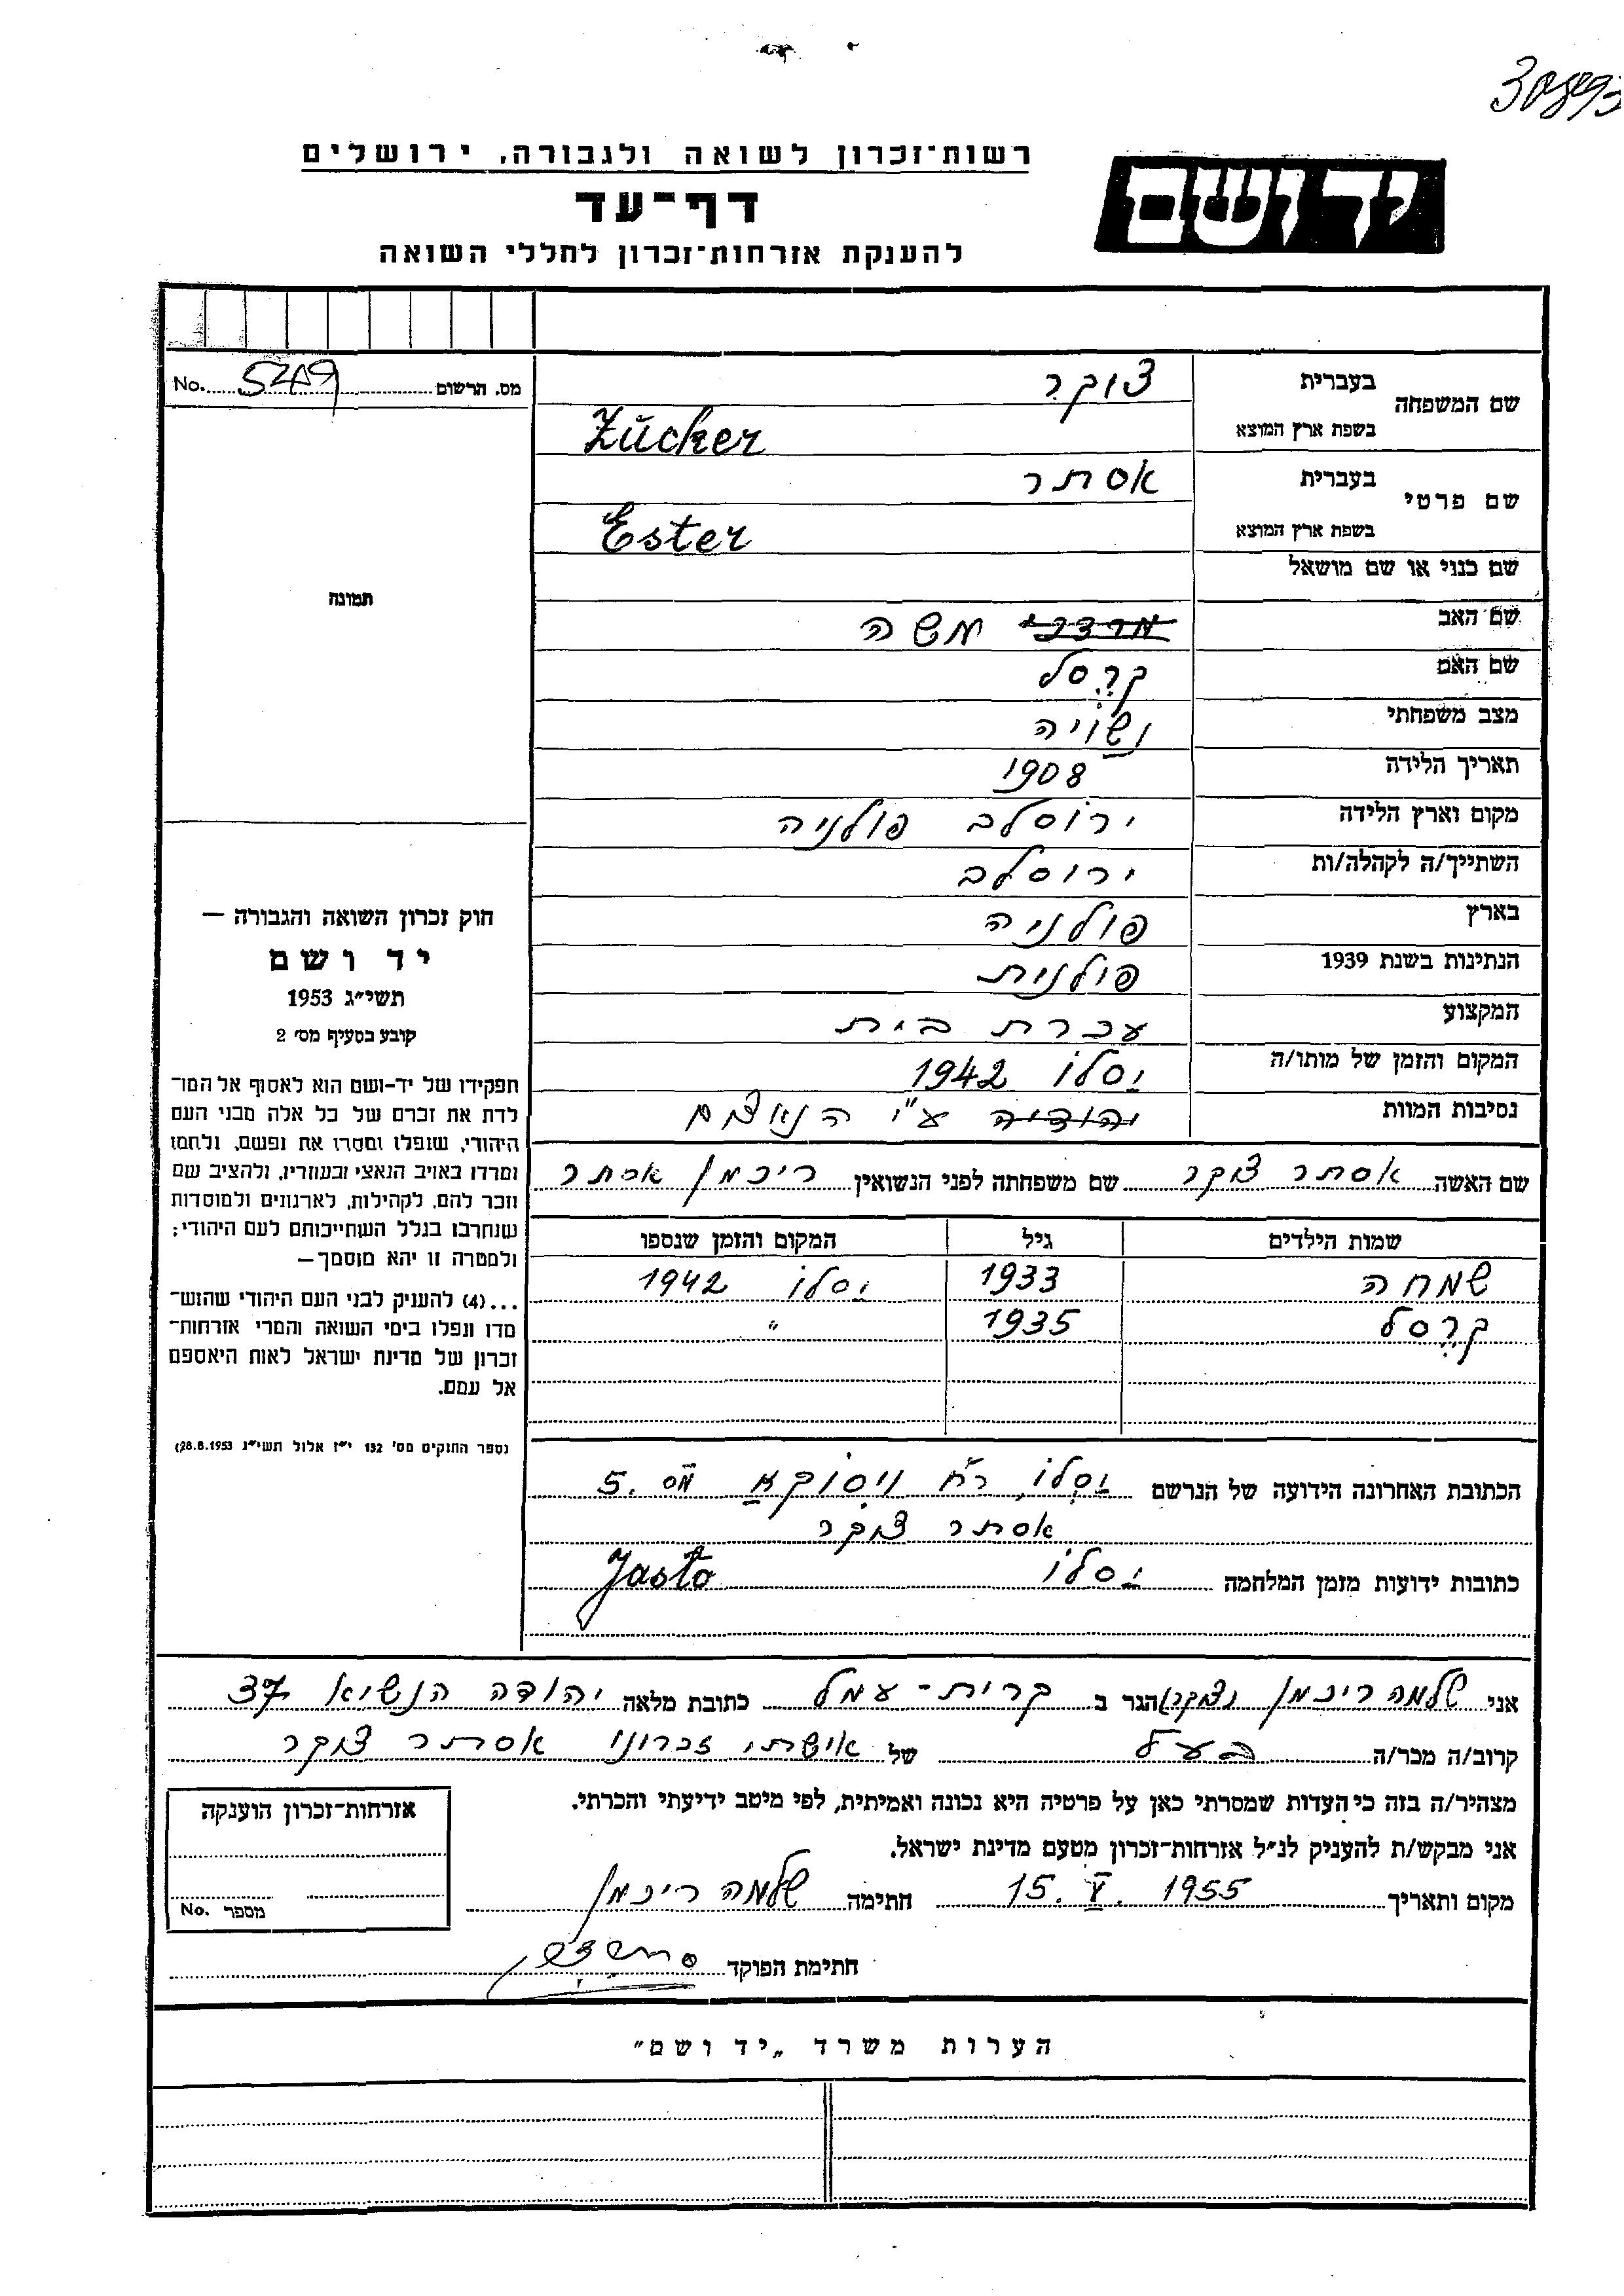 30893
רשות־זכרון לשואה ולגבורה, ירושלים
יד ושם
דף־עד
להענקת אזרחות־זכרון לחללי השואה
מס. הרשום 5419 No.
שם המשפחה
בעברית צוקר
בשפת ארץ המוצא Zücker
שם פרטי
בעברית אסתר
בשפת ארץ המוצא Ester
שם כנוי או שם מושאל
שם האב מרדכי משה
שם האם קרסל
מצב משפחתי נשויה
תאריך הלידה 1908
מקום וארץ הלידה ירוסלב פולניה
השתייך/ה לקהלה/ות ירוסלב
בארץ פולניה
הנתינות בשנת 1939 פולנית
המקצוע עכרת בית
המקום והזמן של מותו/ה יסלו 1942
נסיבות המוות יהודיה ע"י הנאצים
תמונה
חוק זכרון השואה והגבורה —
יד ושם
תשי״ג 1953
קובע בסעיף מס׳ 2
תפקידו של יד-ושם הוא לאסוף אל המו־
לדת את זכרם של כל אלה מבני העם
היהודי, שנפלו ומסרו את נפשם, נלחמו
ומרדו באויב הנאצי ובעוזריו, ולהציב שם
וזכר להם, לקהילות, לארגונים ולמוסדות
שנחרבו בגלל השתייכותם לעם היהודי;
ולמטרה זו יהא מוסמך—
...(4) להעניק לבני העם היהודי שהוש־
מדו ונפלו בימי השואה והמרי אזרחות־
זכרון של מדינת ישראל לאות היאספם
אל עמם.
(ספר החוקים מס׳ 132 י״ז אלול תשי״ג 28.8.1953)
שם האשה אסתר צוקר שם משפחתה לפני הנשואין ריכמן אסתר
שמות הילדים גיל המקום והזמן שנספו
שמחה 1933 יסלו 1942
קרסל 1935 "
הכתובת האחרונה הידועה של הנרשם יסלו, רח' ויסוקא מס. 5
אסתר צוקר
כתובות ידועות מזמן המלחמה יסלו Jasło
אני שלמה ריכמן (צוקר) הגר ב קרית-עמל כתובת מלאה יהודה הנשיא 37
קרוב/ה מכר/ה בעל של אישתי זכרונו אסתר צוקר
מצהיר/ה בזה כי העדות שמסרתי כאן על פרטיה היא נכונה ואמיתית, לפי מיטב ידיעתי והכרתי.
אני מבקש/ת להעניק לנ״ל אזרחות־זכרון מטעם מדינת ישראל.
מקום ותאריך 15. V. 1955 חתימה שלמה ריכמן
חתימת הפוקד
אזרחות־זכרון הוענקה
מספר No.
הערות משרד „יד ושם״